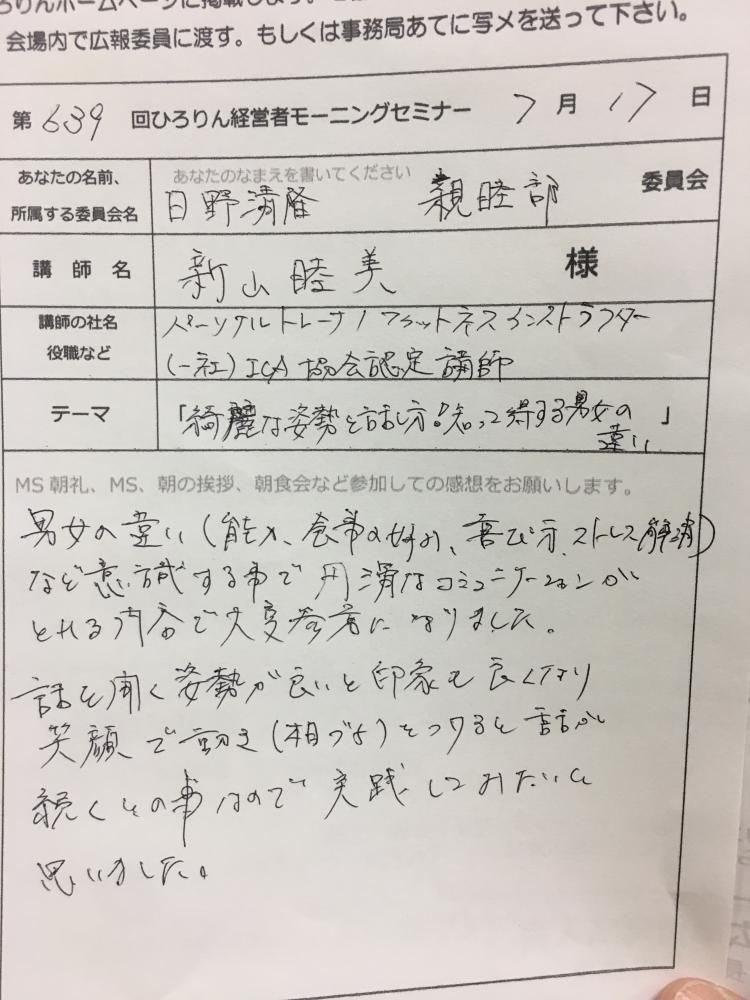 ろりんホームページに掲載します。
会場内で広報委員に渡す。もしくは事務局あてに写メを送って下さい。
第 639 回ひろりん経営者モーニングセミナー 7 月 17 日
あなたの名前、
所属する委員会名
あなたのなまえを書いてください
日野清隆 親睦部 委員会
講 師 名 新山睦美 様
講師の社名
役職など
パーソナルトレーナー/フィットネスインストラクター
(一社)ICA協会認定講師
テーマ 「綺麗な姿勢と話し方!知って得する男女の違い」
MS 朝礼、MS、朝の挨拶、朝食会など参加しての感想をお願いします。
男女の違い(能力、食事の好み、喜び方、ストレス解消)
など意識する事で円滑なコミュニケーションが
とれる内容で大変参考になりました。
話を聞く姿勢が良いと印象も良くなり
笑顔で動き(相づち)をつけると話が
続くとの事なので実践してみたいと
思いました。